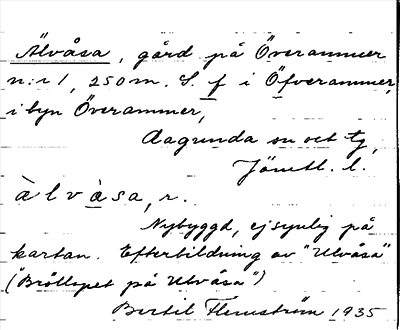 Älvåsa, gård på Överammer
n:r 1, 250 m. S. f i Öfverammer,
i byn Överammer,
Ragunda sn och tg,
Jämtl. l.
àlvàsa, r.
Nybyggd, ej synlig på
kartan. Efterbildning av "Ulvåsa"
("Bröllopet på Ulvåsa")
Bertil Flemström 1935